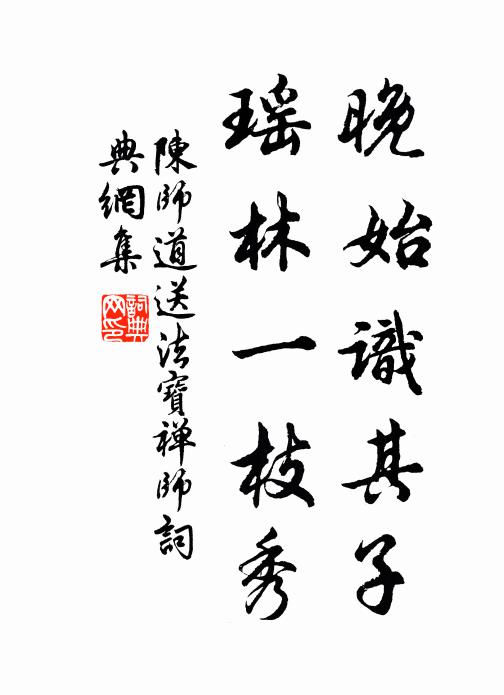 晚始識其子
瑶林一枝秀
陳師道送法寶禅師詞
典網集
詞典网印